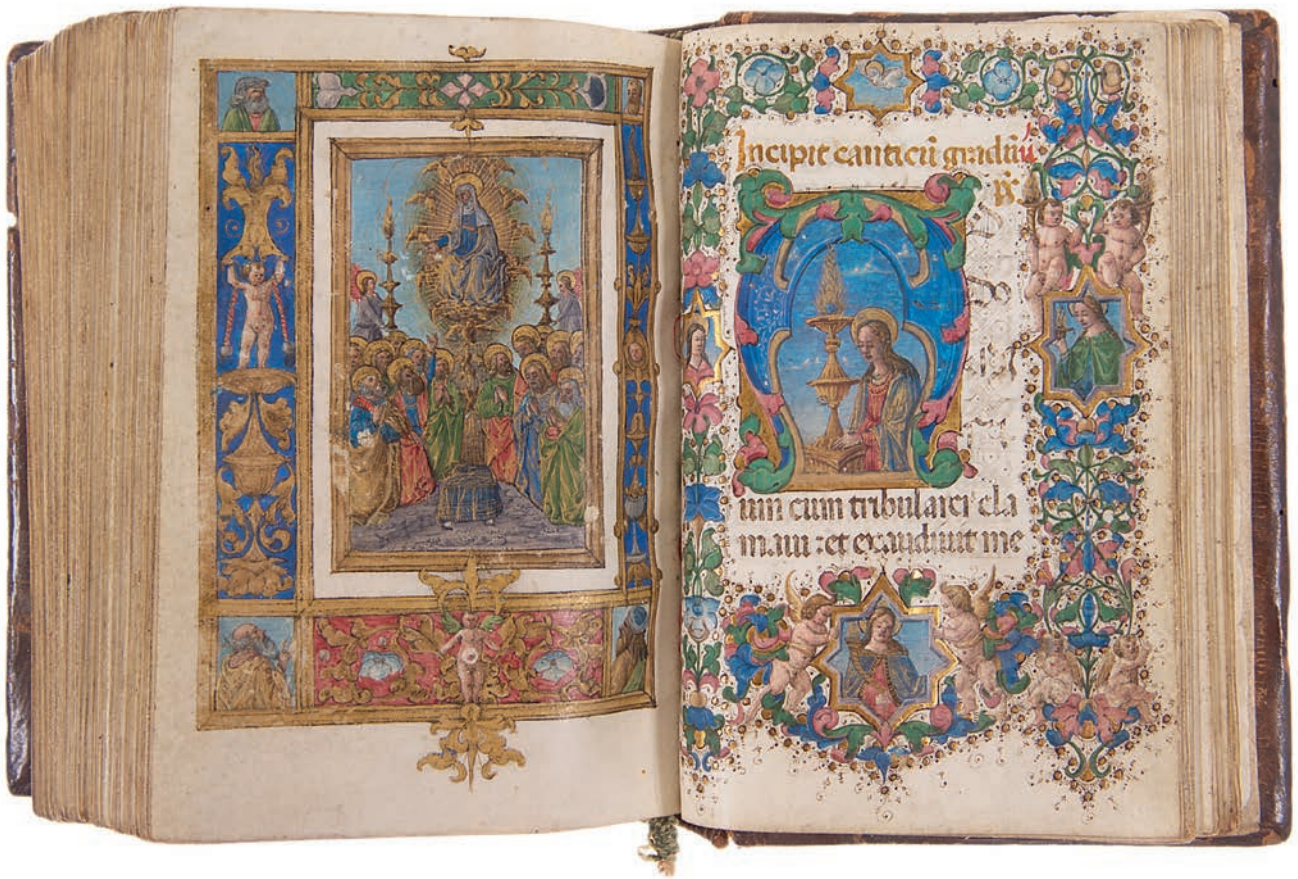 Incipit canticū graduū
um cum tribularer cla
maui : et exaudiuit me